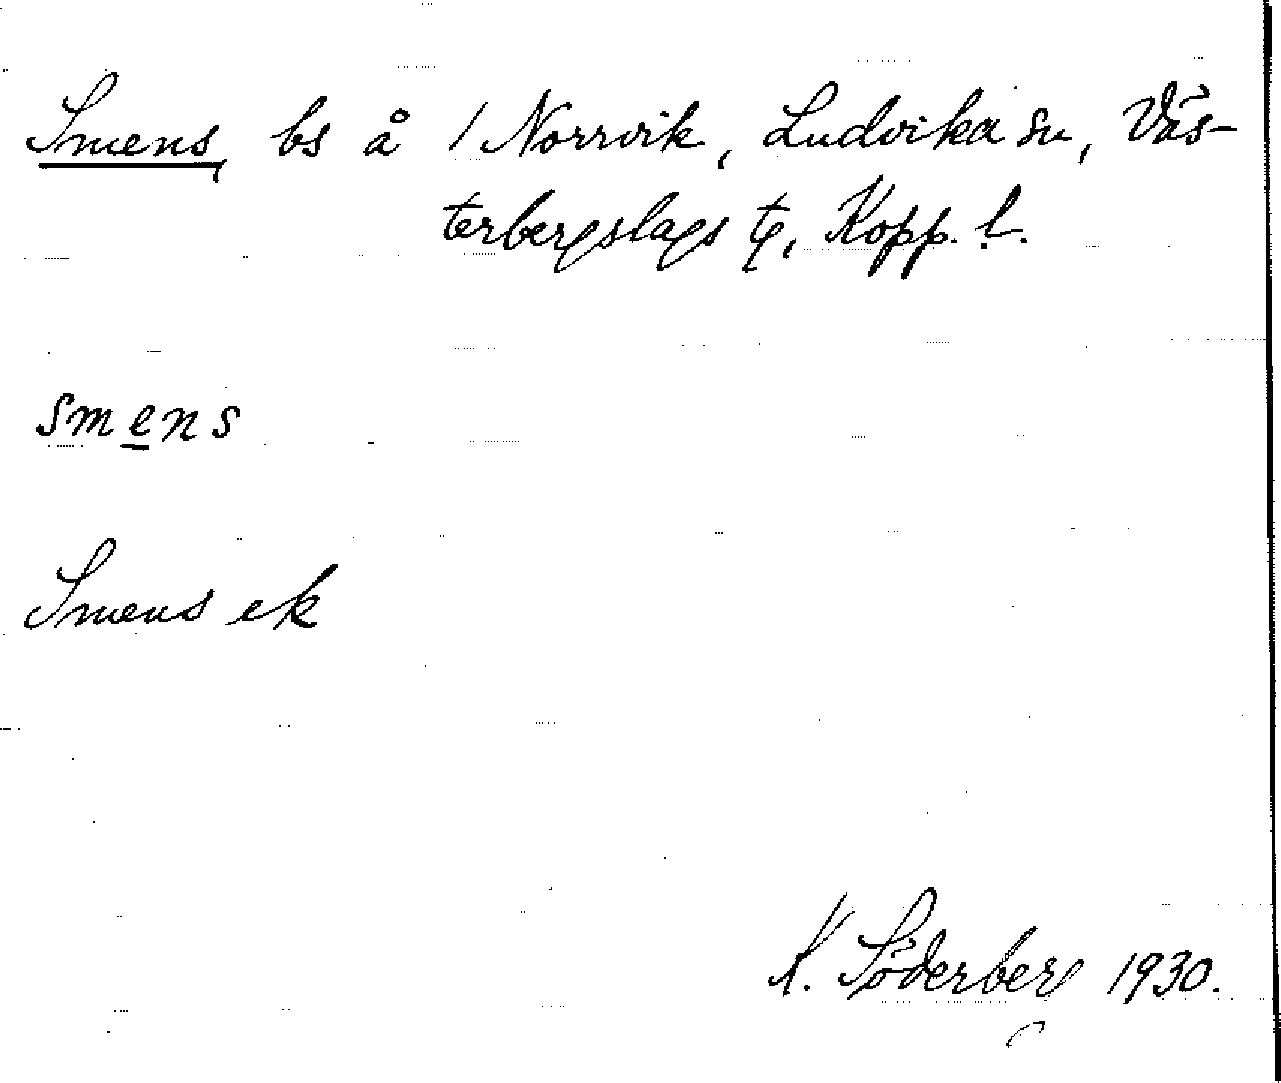 Smens, bs å 1 Norrvik, Ludvika sn, Väs-
terbergslags tg, Kopp. l.
smens
Smens ek
K. Söderberg 1930.